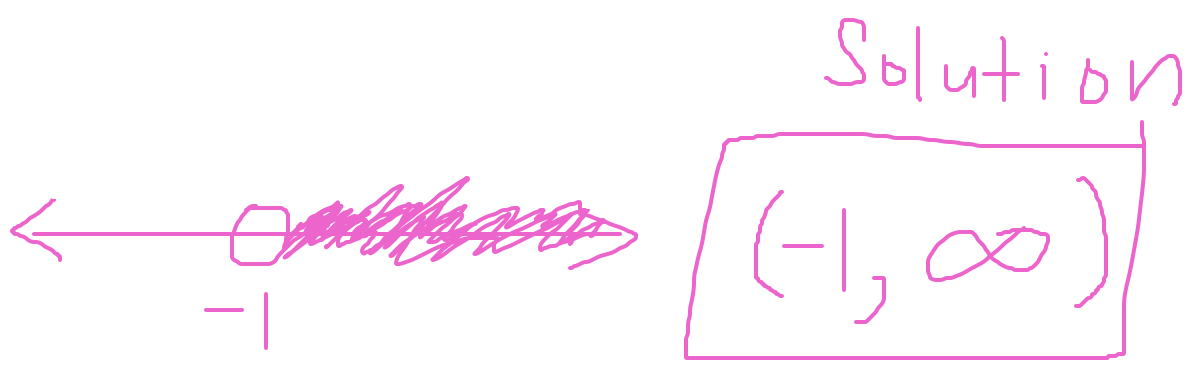 Solution
-1
(-1, ∞)